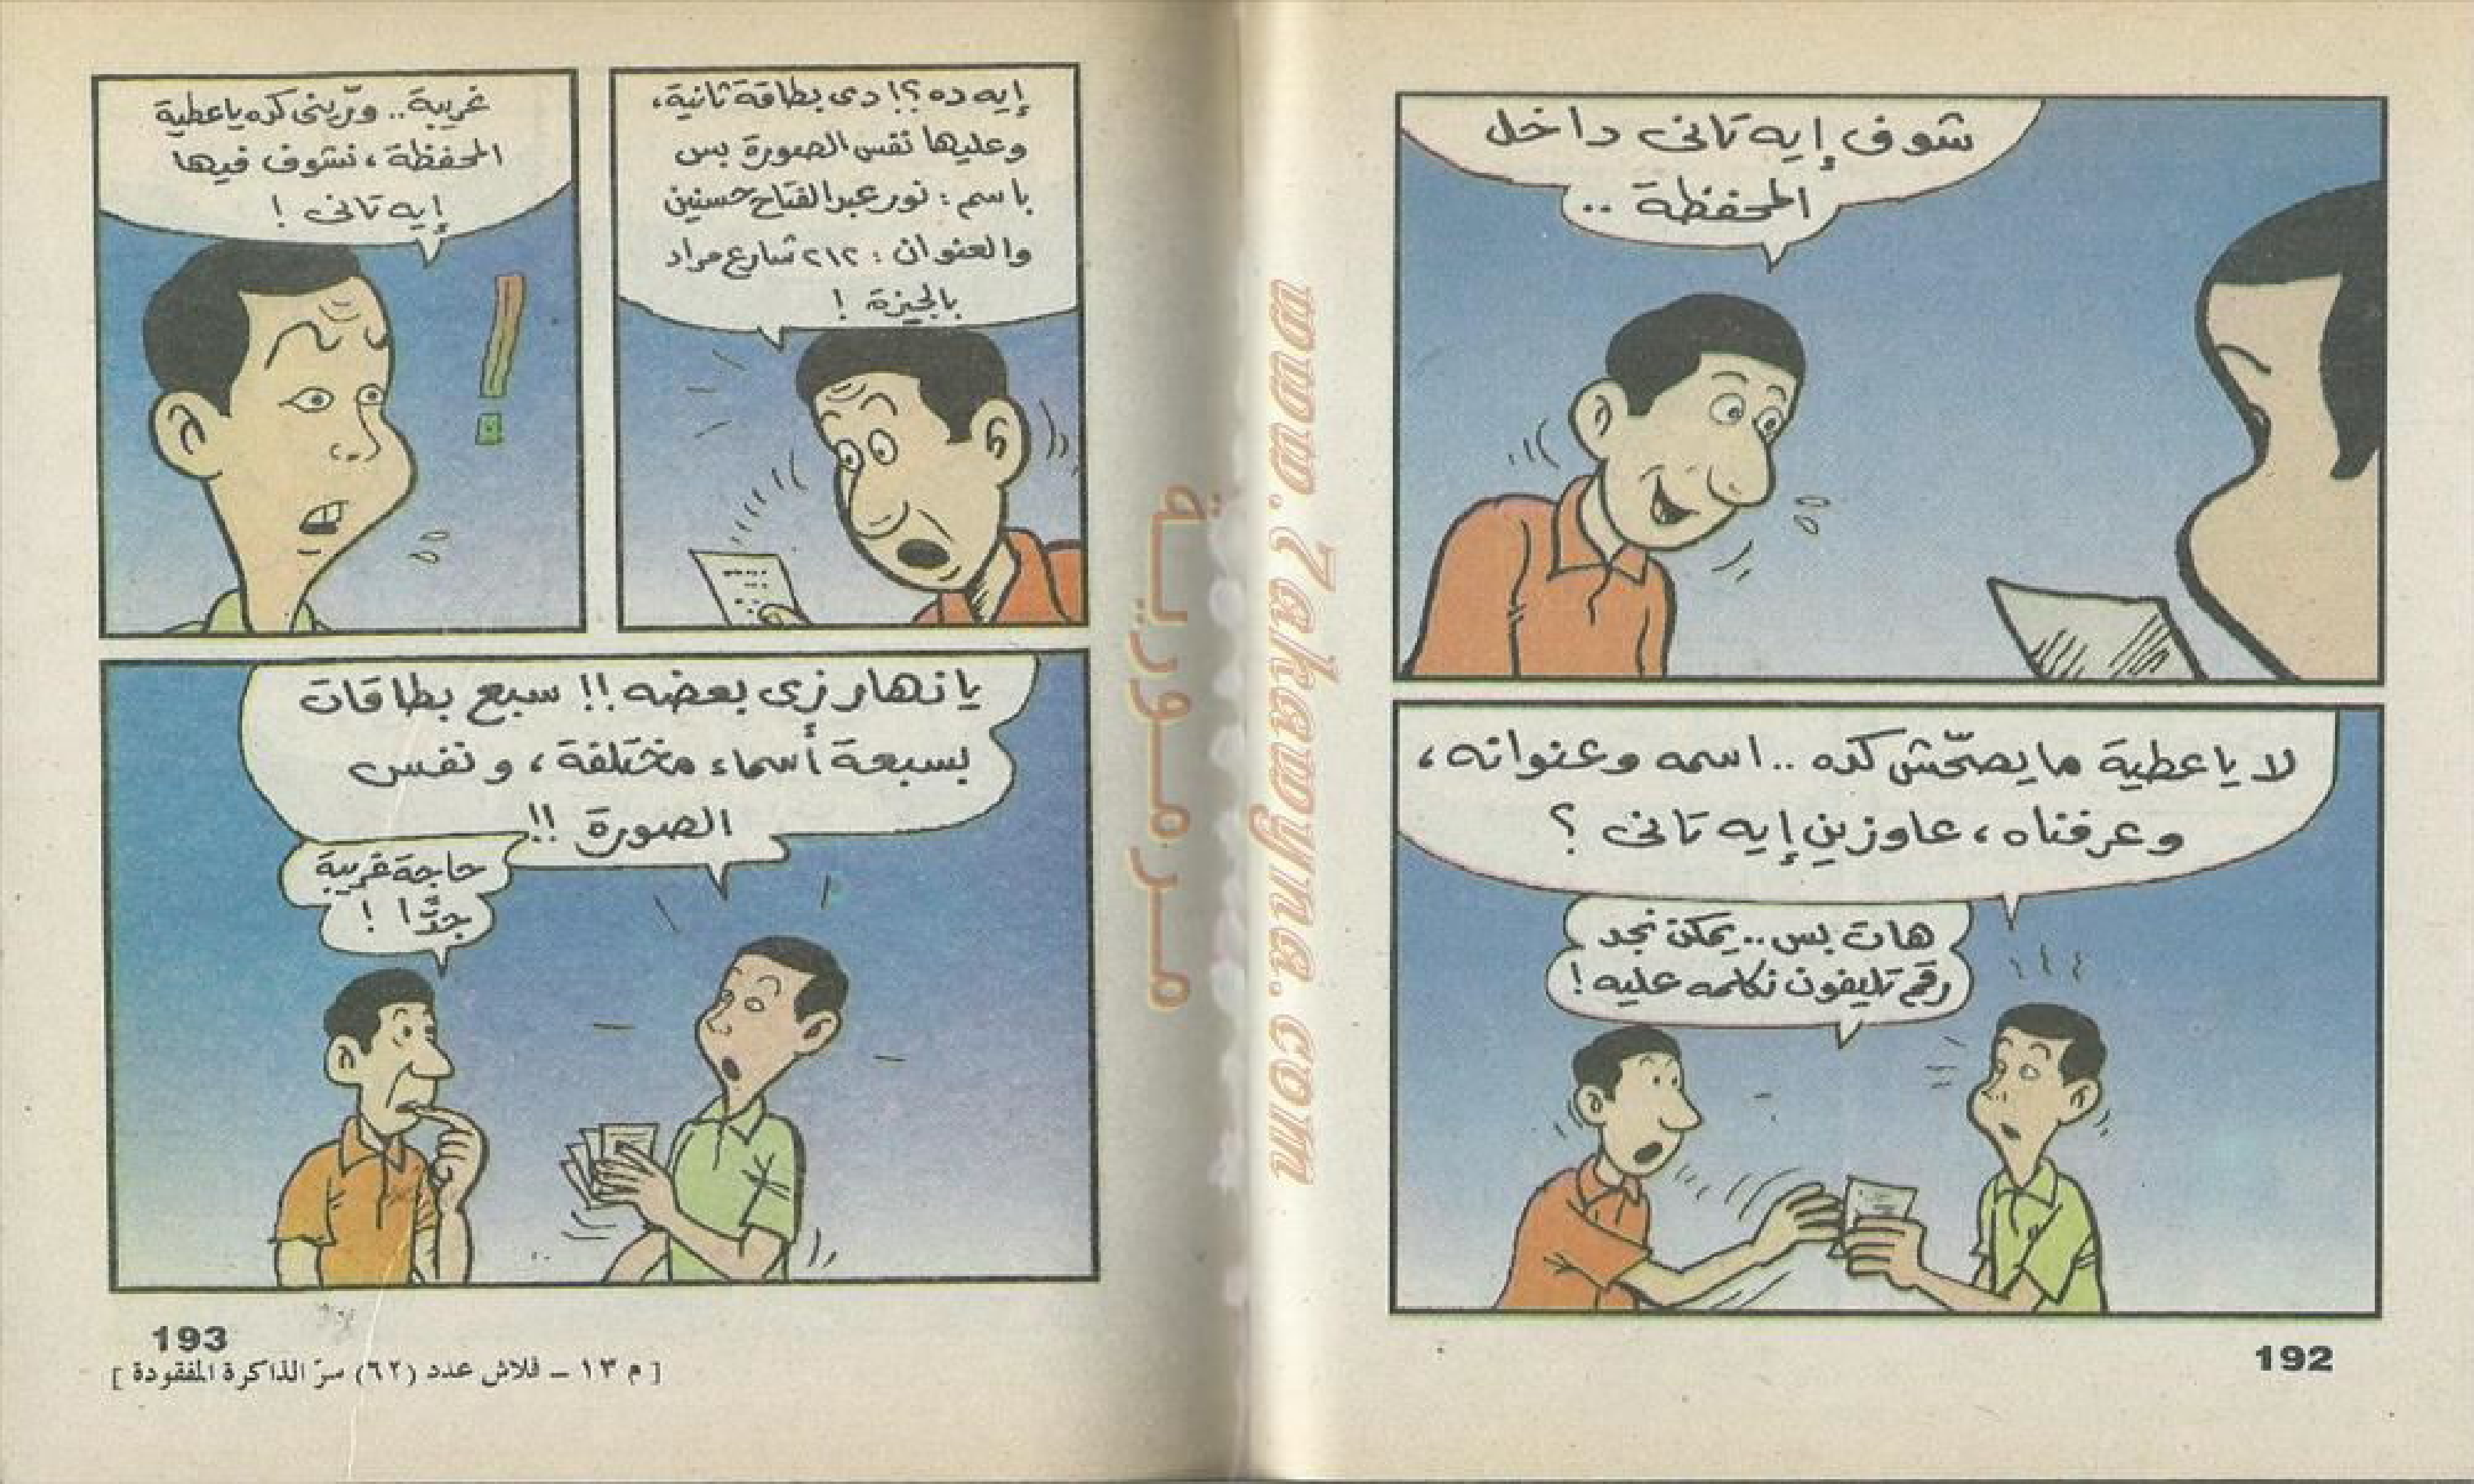 شوف إيه تانى داخل
المحفظة ..
لا يا عطية ما يصحّش كده .. اسمه وعنوانه ،
وعرفناه ، عاوزين إيه تانى ؟
هات بس .. يمكن نجد
رقم تليفون نكلمه عليه !
192
إيه ده ؟! دى بطاقة ثانية ،
وعليها نفس الصورة بس
باسم : نور عبد الفتاح حسنين
والعنوان : ٢١٢ شارع مراد
بالجيزة !
غريبة .. ورّينى كده يا عطية
المحفظة ، نشوف فيها
إيه تانى !
يا نهار زى بعضه !! سبع بطاقات
بسبعة أسماء مختلفة ، ونفس
الصورة !!
حاجة غريبة
جدًّا !
193
[ م ١٣ – فلاش عدد (٦٢) سرّ الذاكرة المفقودة ]
مرمورية
www.7akawyna.com